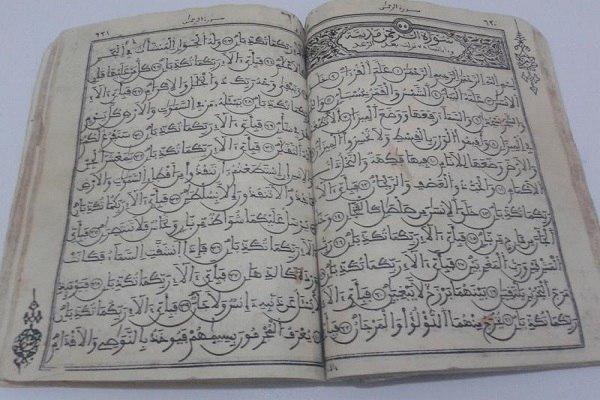 ٦٢٠
سورة الرحمن
سورة الرحمن مدنية
بسم الله الرحمن الرحيم الرحمن علم القرءان خلق
الانسن علمه البيان الشمس والقمر بحسبان والنجم
والشجر يسجدان والسماء رفعها ووضع الميزان ألا
تطغوا في الميزان وأقيموا الوزن بالقسط ولا تخسروا الميزان
والارض وضعها للأنام فيها فكهة والنخل ذات
الاكمام والحب ذو العصف والريحان فبأي ءالاء
ربكما تكذبان خلق الانسن من صلصل كالفخار وخلق
الجان من مارج من نار فبأي ءالاء ربكما تكذبان رب
المشرقين ورب المغربين فبأي ءالاء ربكما تكذبان
مرج البحرين يلتقيان بينهما برزخ لا يبغيان فبأي ءالاء
ربكما تكذبان يخرج منهما اللؤلؤ والمرجان فبأي
٦٢١
سورة الرحمن
ءالاء ربكما تكذبان وله الجوار المنشئات في البحر
كالأعلم فبأي ءالاء ربكما تكذبان كل من عليها فان
ويبقى وجه ربك ذو الجلل والاكرام فبأي ءالاء
ربكما تكذبان يسئله من في السموت والارض كل يوم
هو في شأن فبأي ءالاء ربكما تكذبان سنفرغ لكم
أيه الثقلان فبأي ءالاء ربكما تكذبان يمعشر الجن
والانس إن استطعتم أن تنفذوا من أقطار السموت والارض
فانفذوا لا تنفذون إلا بسلطن فبأي ءالاء ربكما تكذبان
يرسل عليكما شواظ من نار ونحاس فلا تنتصران فبأي
ءالاء ربكما تكذبان فإذا انشقت السماء فكانت
وردة كالدهان فبأي ءالاء ربكما تكذبان فيومئذ
لا يسئل عن ذنبه إنس ولا جان فبأي ءالاء ربكما تكذبان
يعرف المجرمون بسيمهم فيؤخذ بالنوصي والاقدام